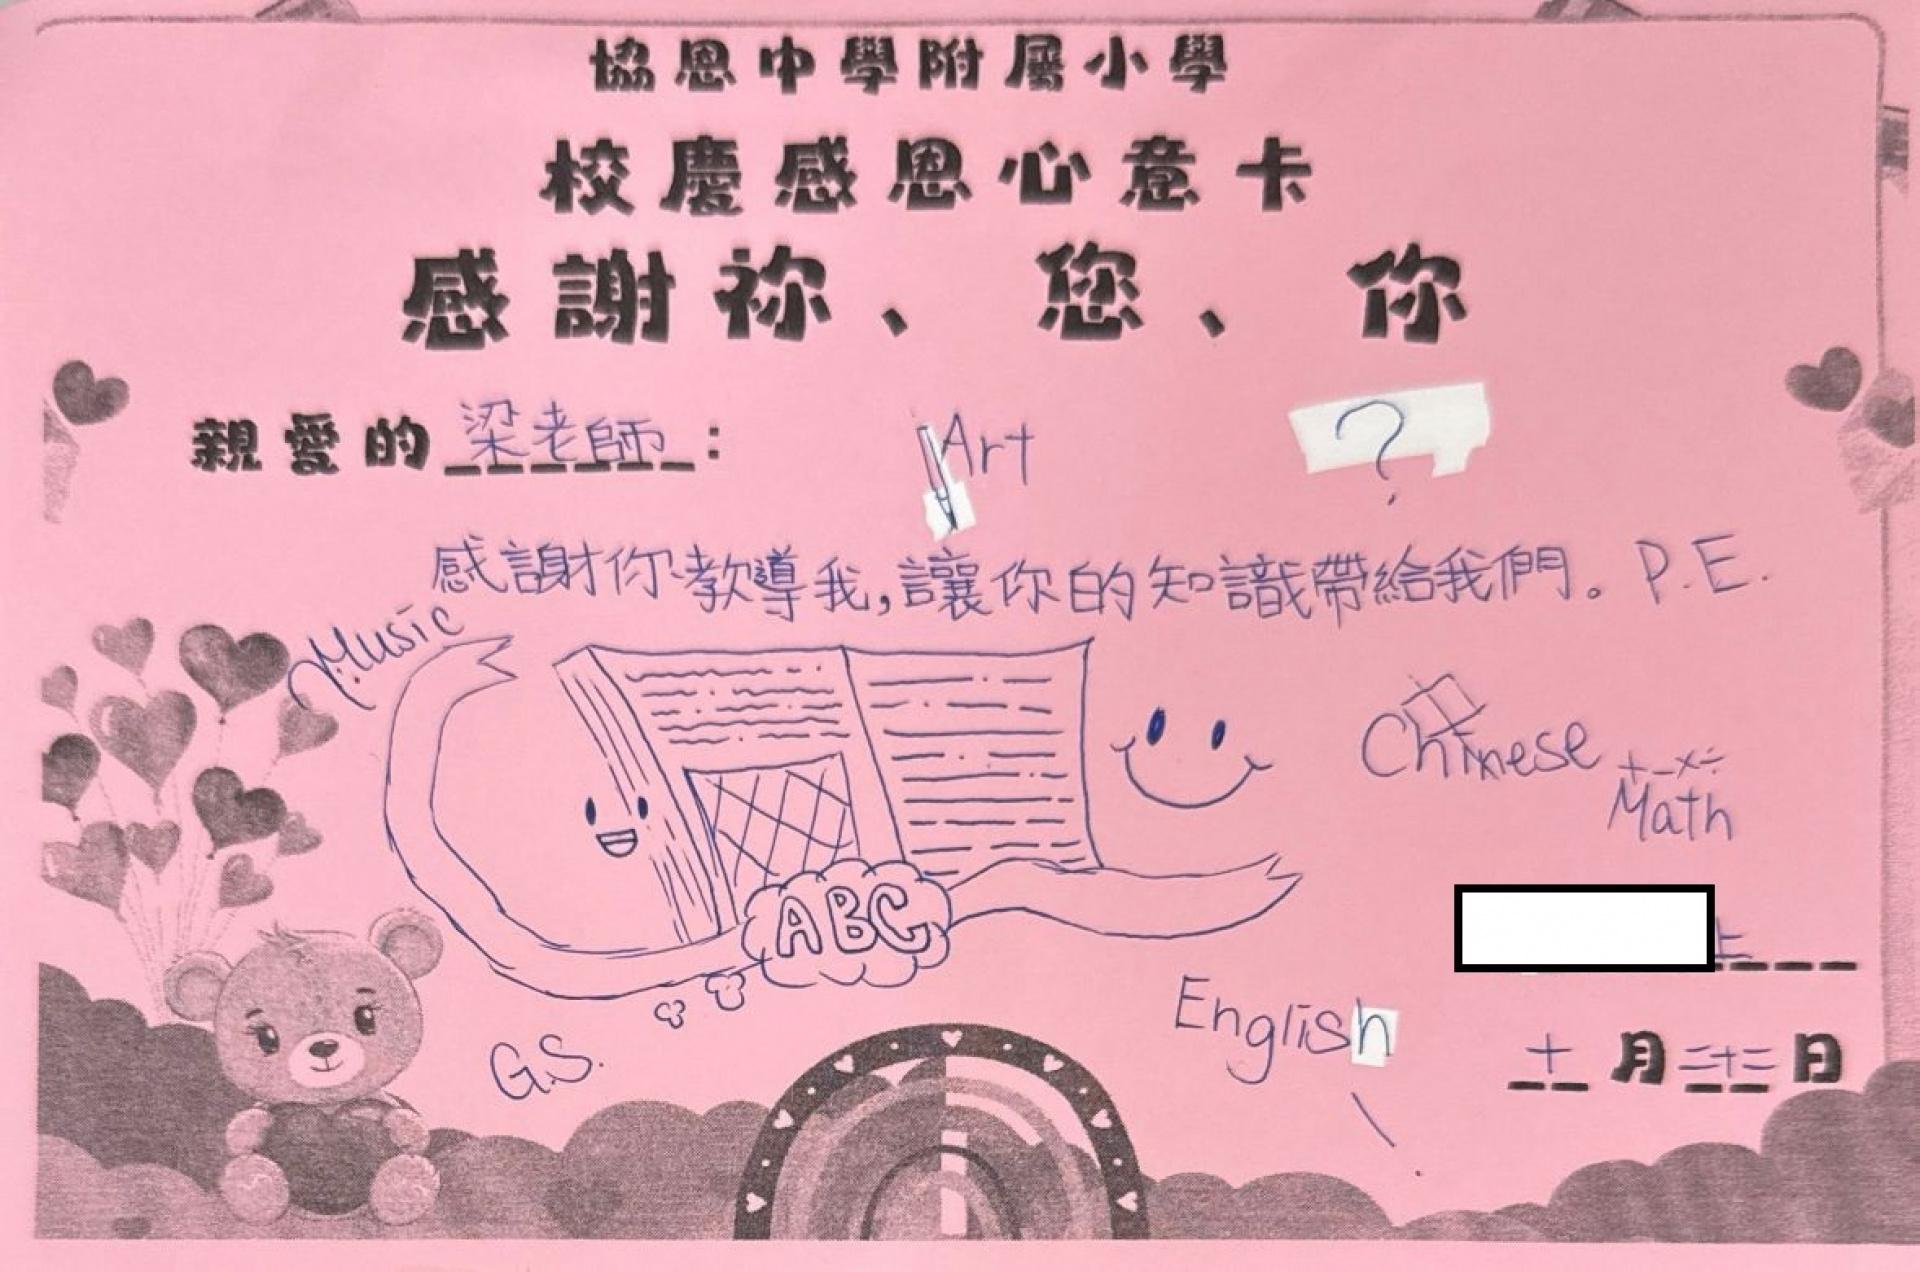 協恩中學附屬小學
校慶感恩心意卡
感謝祢、您、你
親愛的梁老師：
Art
?
感謝你教導我,讓你的知識帶給我們。
P.E.
Music
Chinese
中
+-×÷
Math
ABC
上
English
G.S.
十月二十二日